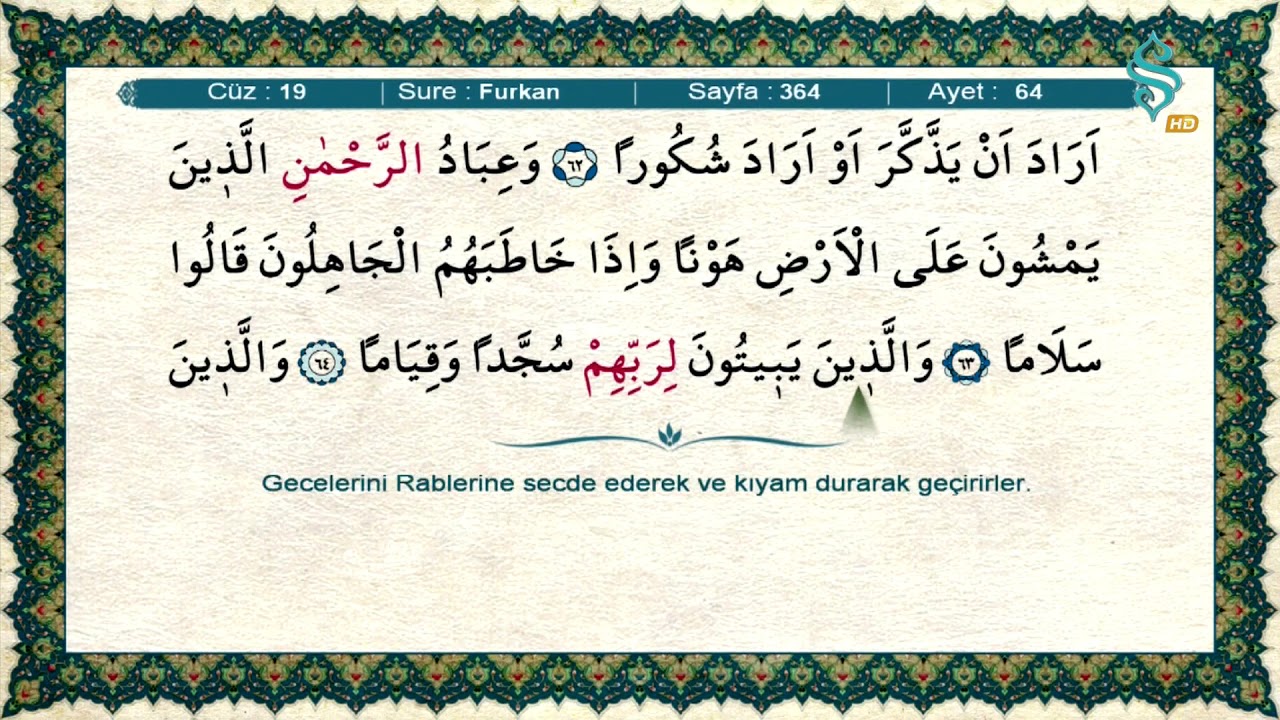 Cüz : 19 | Sure : Furkan | Sayfa : 364 | Ayet : 64
HD
اَرَادَ اَنْ يَذَّكَّرَ اَوْ اَرَادَ شُكُورًا ﴿٦٢﴾ وَعِبَادُ الرَّحْمٰنِ الَّذ۪ينَ
يَمْشُونَ عَلَى الْاَرْضِ هَوْنًا وَاِذَا خَاطَبَهُمُ الْجَاهِلُونَ قَالُوا
سَلَامًا ﴿٦٣﴾ وَالَّذ۪ينَ يَب۪يتُونَ لِرَبِّهِمْ سُجَّدًا وَقِيَامًا ﴿٦٤﴾ وَالَّذ۪ينَ
Gecelerini Rablerine secde ederek ve kıyam durarak geçirirler.